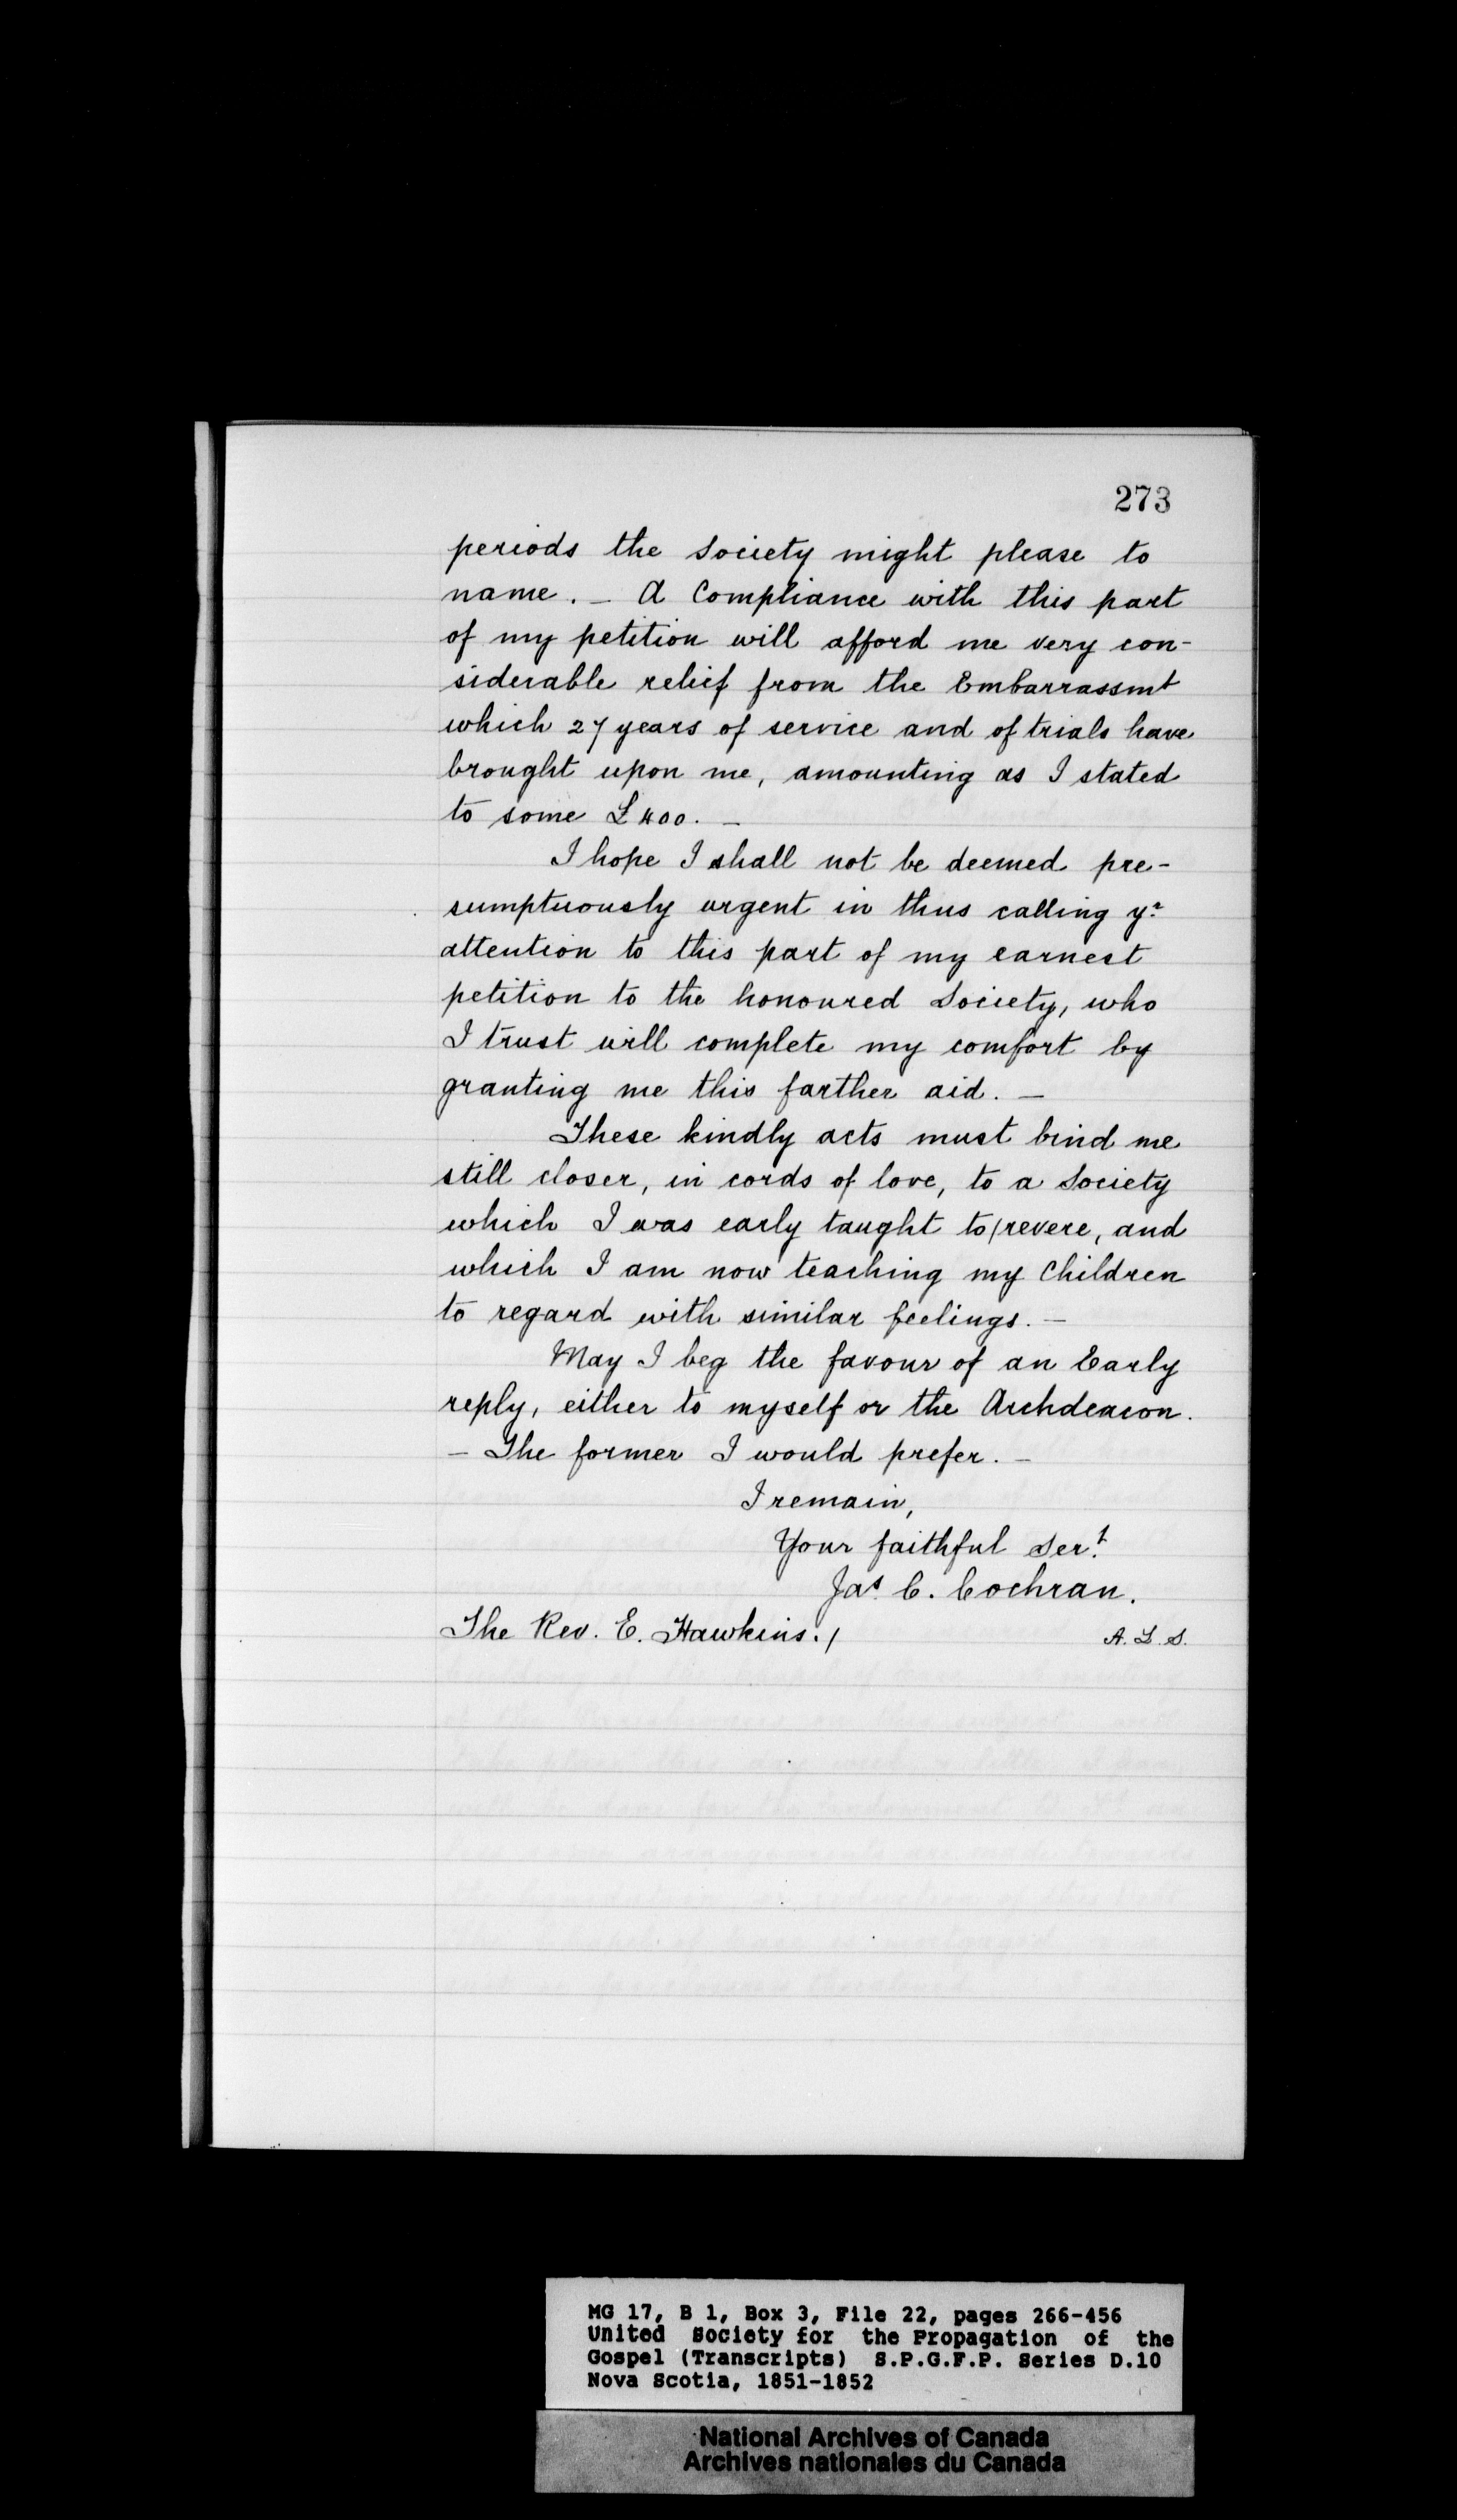 273
periods the Society might please to
name. _ A Compliance with this part
of my petition will afford me very con-
siderable relief from the Embarrassmt
which 27 years of service and of trials have
brought upon me, amounting as I stated
to some £400. _
I hope I shall not be deemed pre-
sumptuously urgent in thus calling yr
attention to this part of my earnest
petition to the honoured Society, who
I trust will complete my comfort by
granting me this farther aid. _
These kindly acts must bind me
still closer, in cords of love, to a Society
which I was early taught to/revere, and
which I am now teaching my Children
to regard with similar feelings. _
May I beg the favour of an Early
reply, either to myself or the Archdeacon.
_ The former I would prefer. _
I remain,
Your faithful Sert.
Jas. C. Cochran.
The Rev. E. Hawkins./ A. L. S.
MG 17, B 1, Box 3, File 22, pages 266-456
United Society for the Propagation of the
Gospel (Transcripts) S.P.G.F.P. Series D.10
Nova Scotia, 1851-1852
National Archives of Canada
Archives nationales du Canada